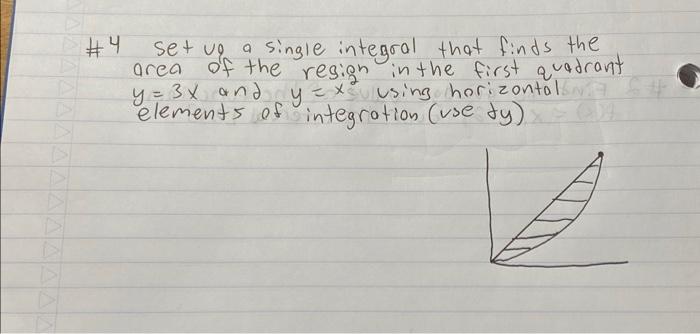 #4 set up a single integral that finds the
area of the region in the first quadrant
y = 3x and y = x² using horizontal
elements of integration (use dy)